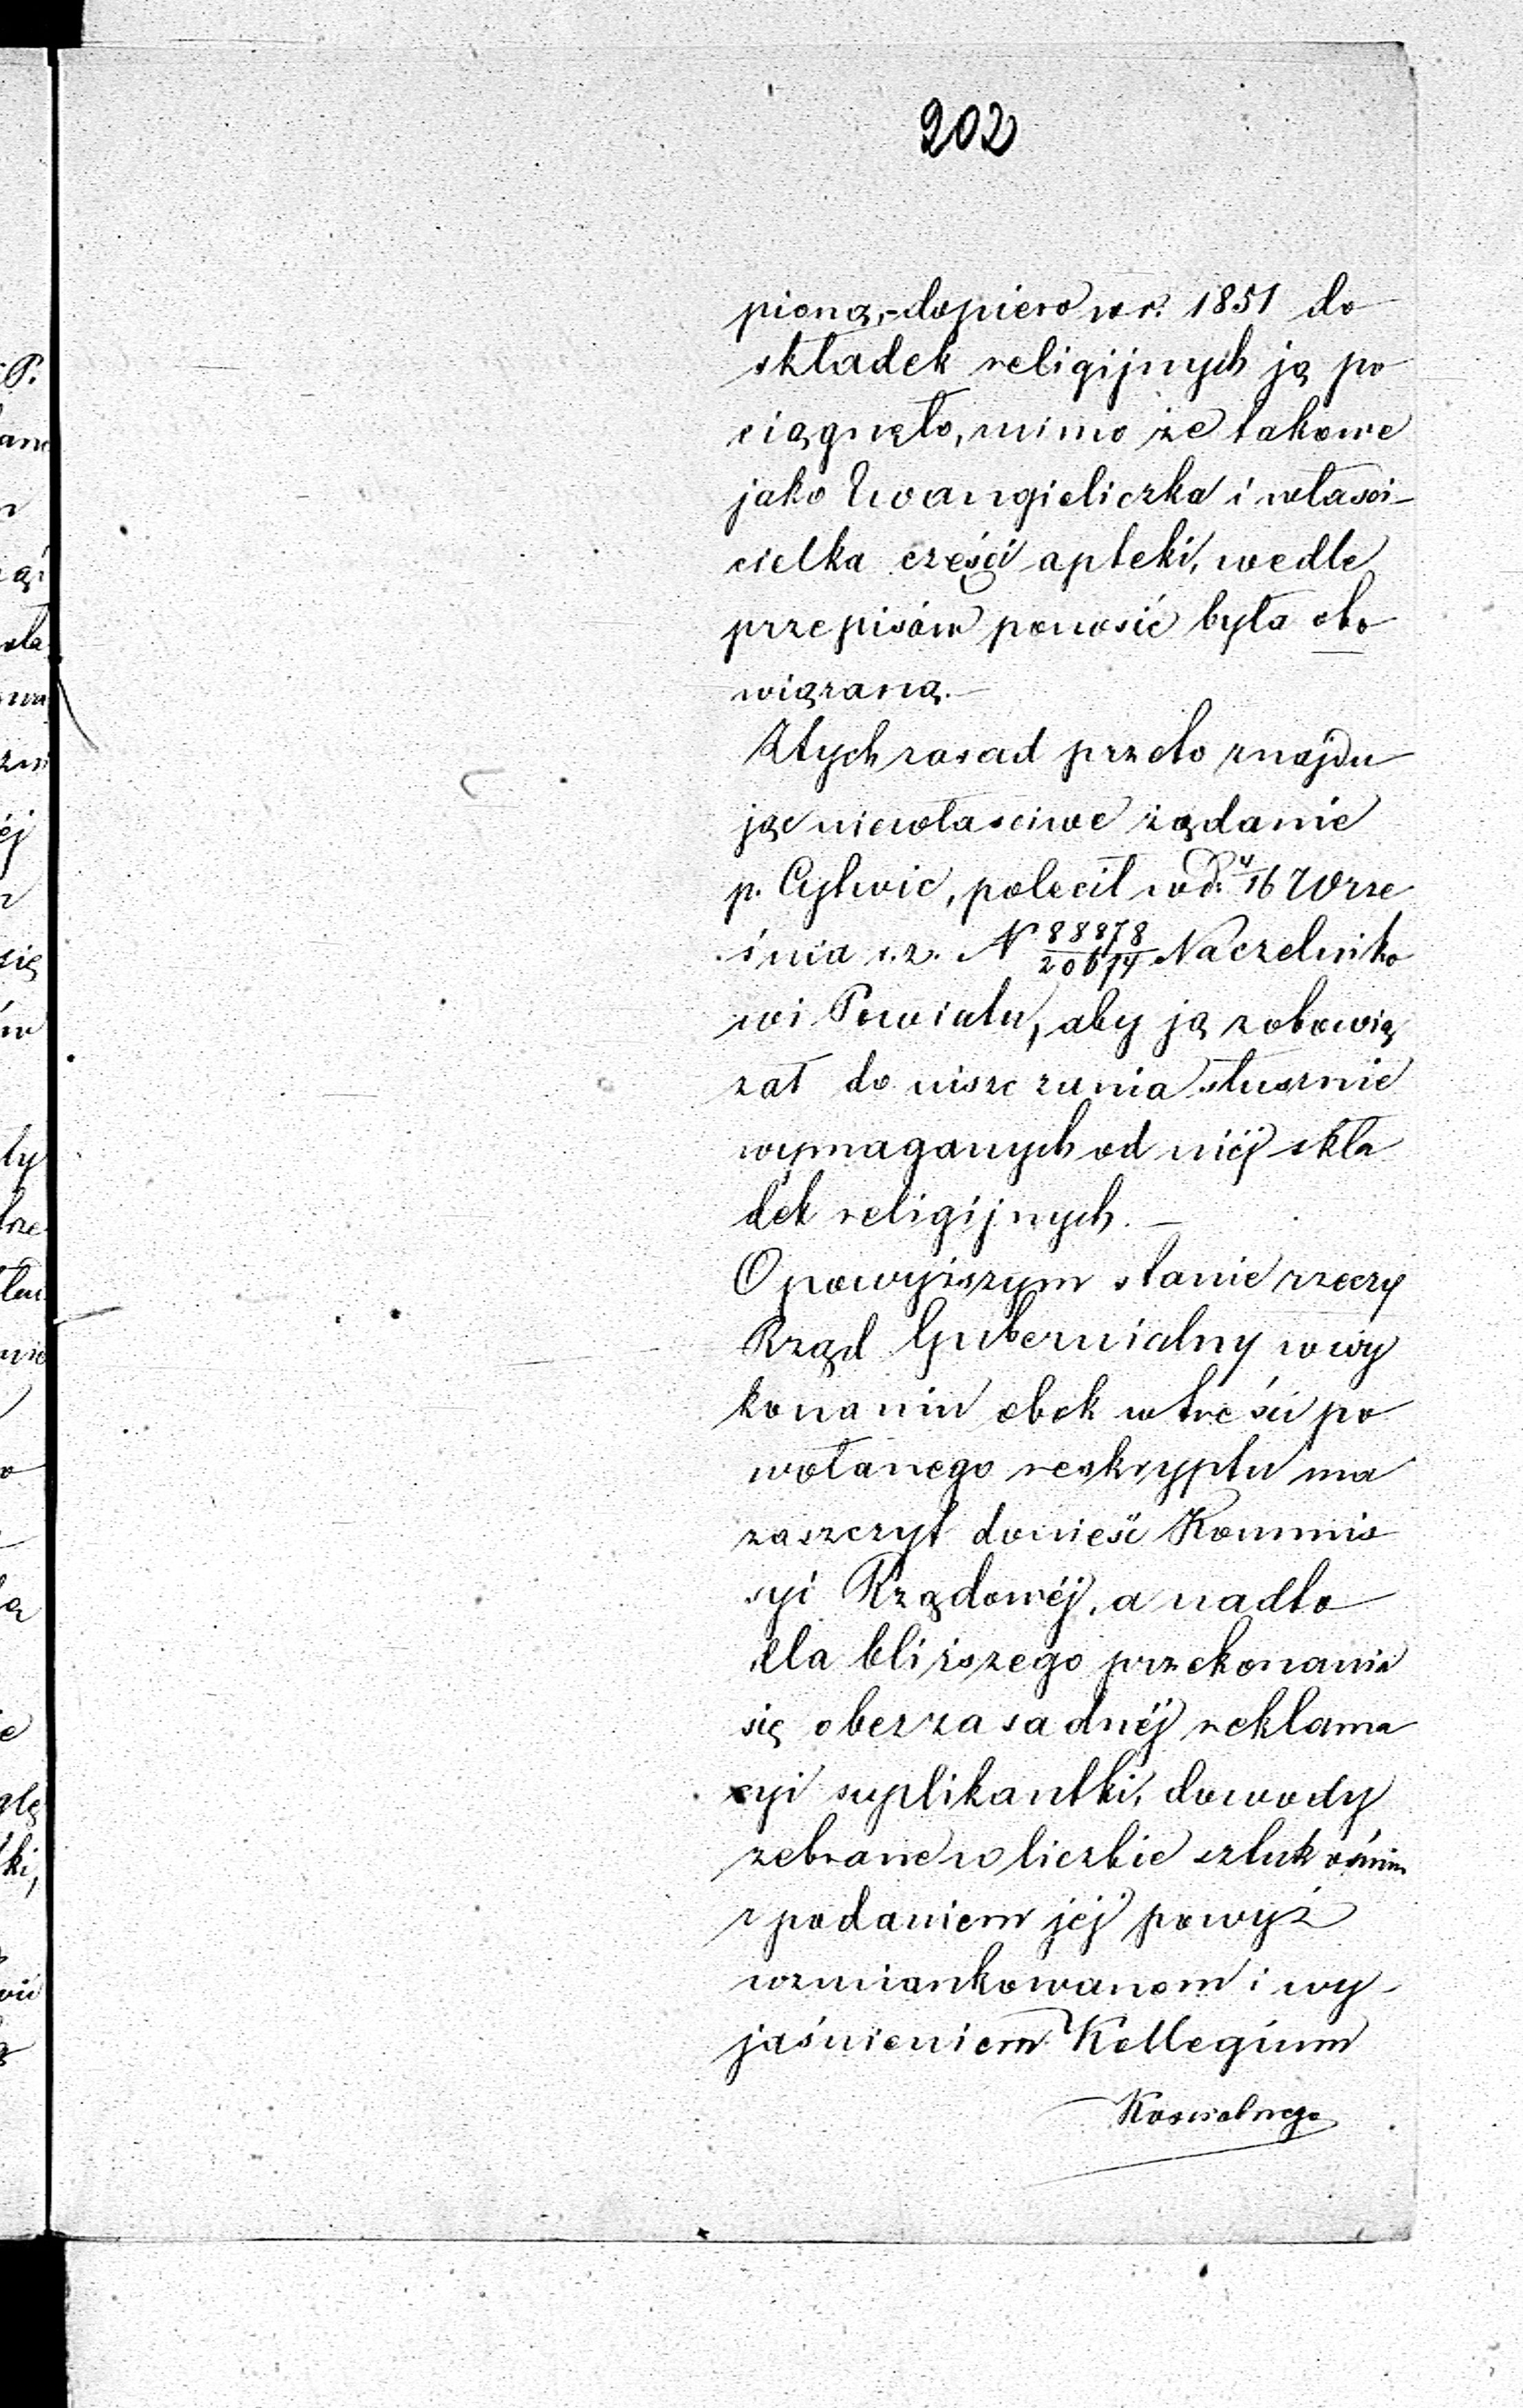 202
pioną,-dopiero w r. 1851 do
składek religijnych ją po
ciągnęło, mimo że takowe
jako Ewangieliczka i właści-
cielka części apteki, wedle
przepisów ponosić była obo
wiązaną.-
Z tych zasad przeto znajdu
jąc niewłaściwe żądanie
p. Cytwic, polecił w d. 4/16 Wrze
śnia r.z. N 88878/20614 Naczelniko
wi Powiatu, aby ją zobowią
zał do uiszczania słusznie
wymaganych od niéj skła
dek religijnych.-
O powyższym stanie rzeczy
Rząd Gubernialny w wy
konaniu obok w treści po
wołanego reskryptu ma
zaszczyt donieść Kommis
syi Rządowéj, a nadto
dla bliższego przekonania
się o bezzasadnéj reklama
cyi suplikantki, dowody
zebrane w liczbie sztuk ośmiu
z podaniem jéj powyż
wzmiankowanem i wy-
jaśnieniem Kollegium
Kościelnego